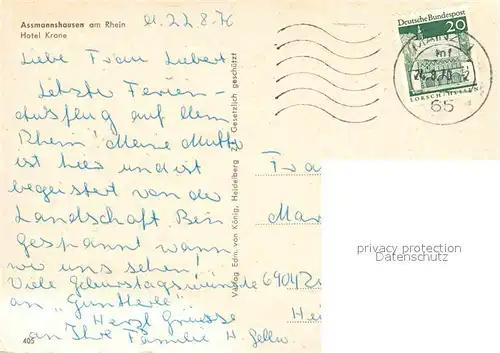 Assmannshausen am Rhein
Hotel Krone
d. 22.8.70
Liebe Frau Liebert
Letzte Ferien-
ausflug auf dem
Rhein! Meine Mutter
ist hier und ist
begeistert von der
Landschaft. Bin
gespannt wann
wir uns sehen!
Viele Geburtstagswünsche
an "Günterle".
Herzl Grüsse
an Ihre Familie H.
405
Verlag Edm. von König, Heidelberg
Ges. Gesetzlich geschützt
Deutsche Bundespost
20
LORSCH/HESSEN
MAINZ
65
Frau
Mar
6904
Hei
privacy protection
Datenschutz